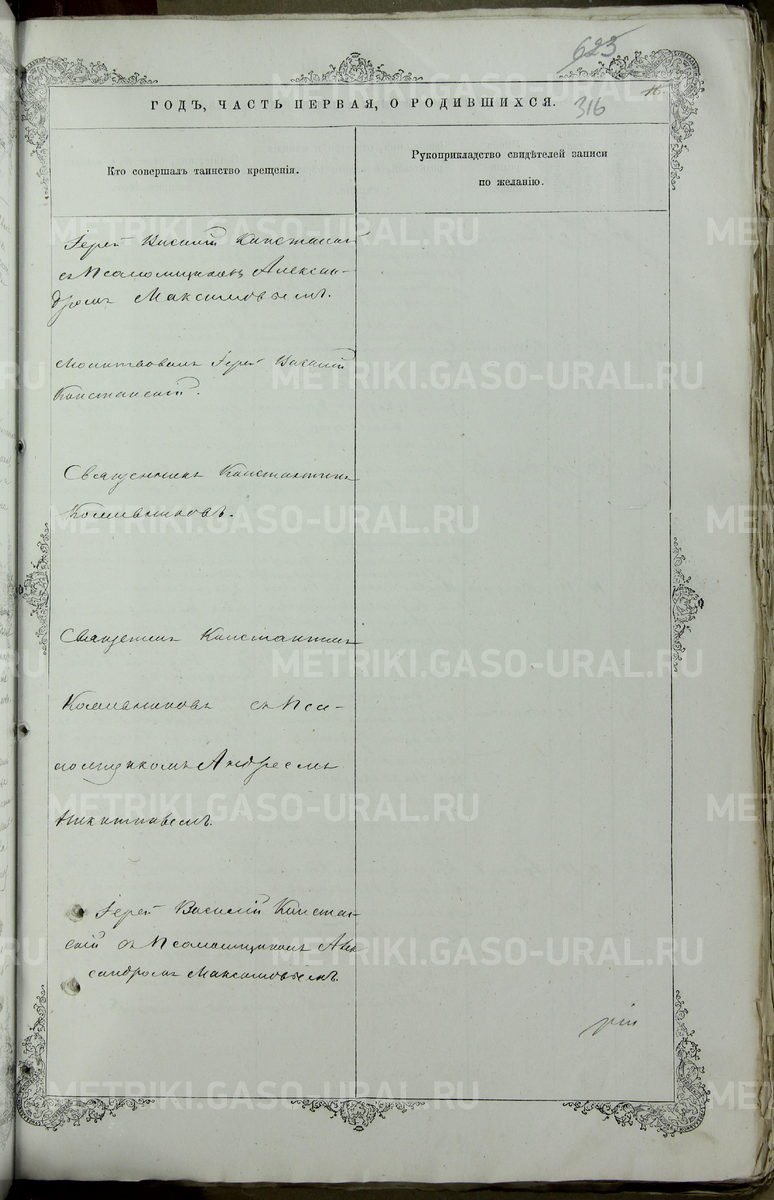 623
16.
ГОДЪ, ЧАСТЬ ПЕРВАЯ, О РОДИВШИХСЯ.
316
Кто совершалъ таинство крещенія.
Рукоприкладство свидѣтелей записи
по желанію.
Іерей Василій Констанскій
съ Псаломщикомъ Алексан-
дромъ Максимовымъ.
Молитвовалъ Іерей Василій
Констанскій.
Священникъ Константинъ
Священникъ Константинъ
съ Пса-
ломщикомъ Андреемъ
Никитинымъ.
Іерей Василій Констан-
скій съ Псаломщикомъ Алек
сандромъ Максимовымъ.
METRIKI.GASO-URAL.RU